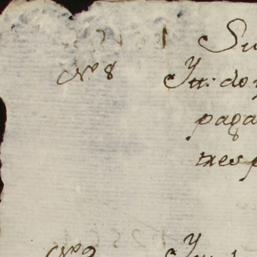 Su
Nº 8 Ytt: do
paga
tres p
Nº 9